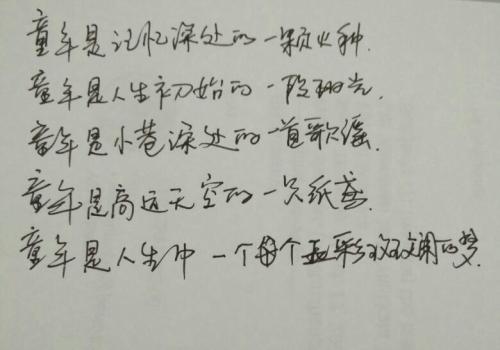 童年是记忆深处的一颗火种.
童年是人生初始的一段珊光.
童年是小巷深处的一首歌谣.
童年是高远天空的一只纸鸢.
童年是人生中一个个五彩斑斓的梦.